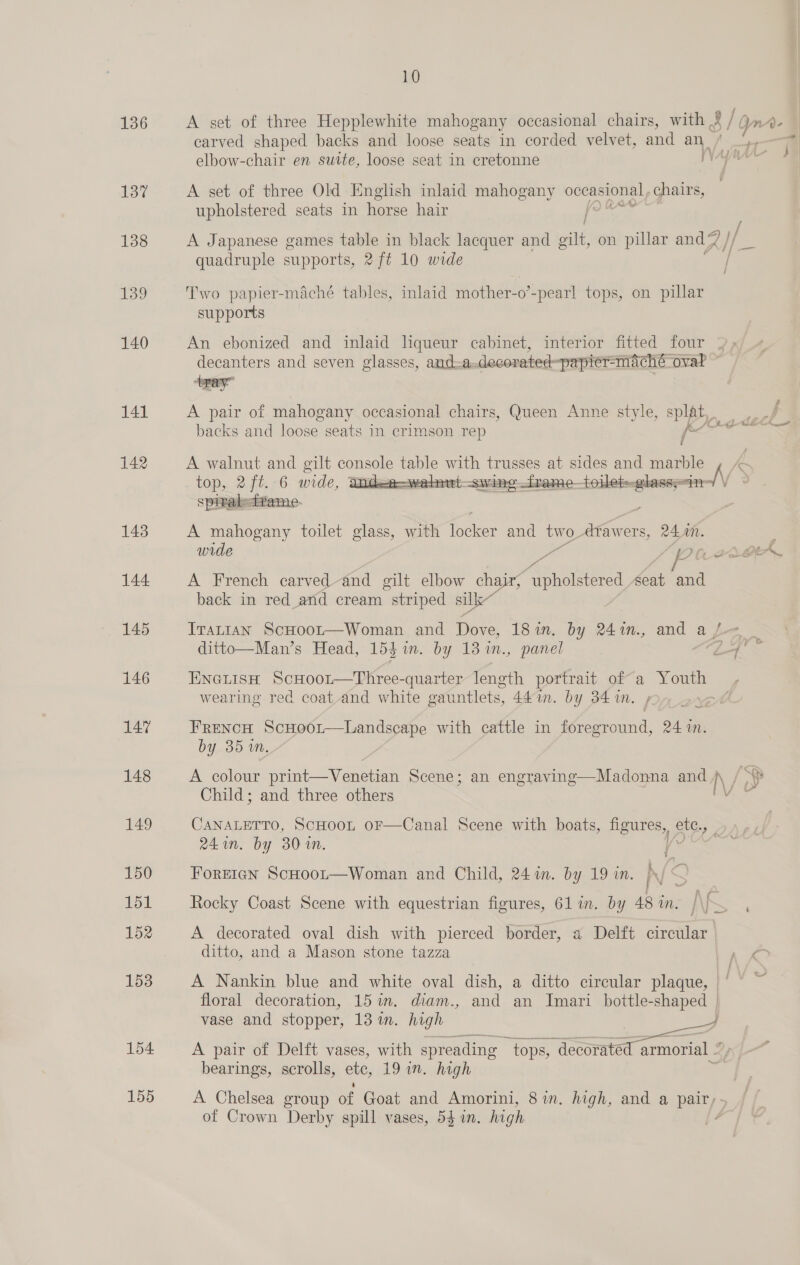 10
136 A set of three Hepplewhite mahogany occasional chairs, with
carved shaped backs and loose seats in corded velvet, and an
elbow-chair en suite, loose seat in cretonne
137 A set of three Old English inlaid mahogany occasional chairs,
upholstered seats in horse hair
138 A Japanese games table in black lacquer and gilt, on pillar and
quadruple supports, 2 ft 10 wide
139 Two papier-mâché tables, inlaid mother-o'-pearl tops, on pillar
supports
140 An ebonized and inlaid liqueur cabinet, interior fitted four
decanters and seven glasses, and a decorated papier-mâché oval
tray
141 A pair of mahogany occasional chairs, Queen Anne style, splat
backs and loose seats in crimson rep
142 A walnut and gilt console table with trusses at sides and marble
top, 2 ft. 6 wide, and a walnut swing frame toilet glass, in
spiral frame
143 A mahogany toilet glass, with locker and two drawers, 24 in.
wide
144 A French carved and gilt elbow chair, upholstered seat and
back in red and cream striped silk
145 ITALIAN SCHOOL—Woman and Dove, 18 in. by 24 in., and a
ditto—Man's Head, 15½ in. by 13 in., panel
146 ENGLISH SCHOOL—Three-quarter length portrait of a Youth
wearing red coat and white gauntlets, 44 in. by 34 in.
147 FRENCH SCHOOL—Landscape with cattle in foreground, 24 in.
by 35 in.
148 A colour print—Venetian Scene; an engraving—Madonna and
Child; and three others
149 CANALETTO, SCHOOL OF—Canal Scene with boats, figures, etc.,
24 in. by 30 in.
150 FOREIGN SCHOOL—Woman and Child, 24 in. by 19 in.
151 Rocky Coast Scene with equestrian figures, 61 in. by 48 in.
152 A decorated oval dish with pierced border, a Delft circular
ditto, and a Mason stone tazza
153 A Nankin blue and white oval dish, a ditto circular plaque,
floral decoration, 15 in. diam., and an Imari bottle-shaped
vase and stopper, 13 in. high
154 A pair of Delft vases, with spreading tops, decorated armorial
bearings, scrolls, etc, 19 in. high
155 A Chelsea group of Goat and Amorini, 8 in. high, and a pair
of Crown Derby spill vases, 5½ in. high